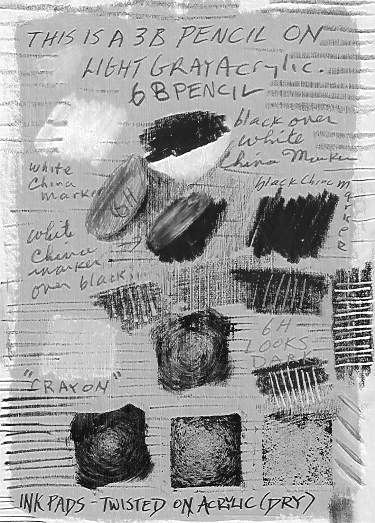 THIS IS A 3B PENCIL ON
LIGHT GRAY Acrylic.
6B PENCIL
black over
white
China Marker
white
China
marker
6H
black China
marker
white
China
marker
over black
6H
LOOKS
DARK
"CRAYON"
INK PADS - TWISTED ON ACRYLIC (DRY)